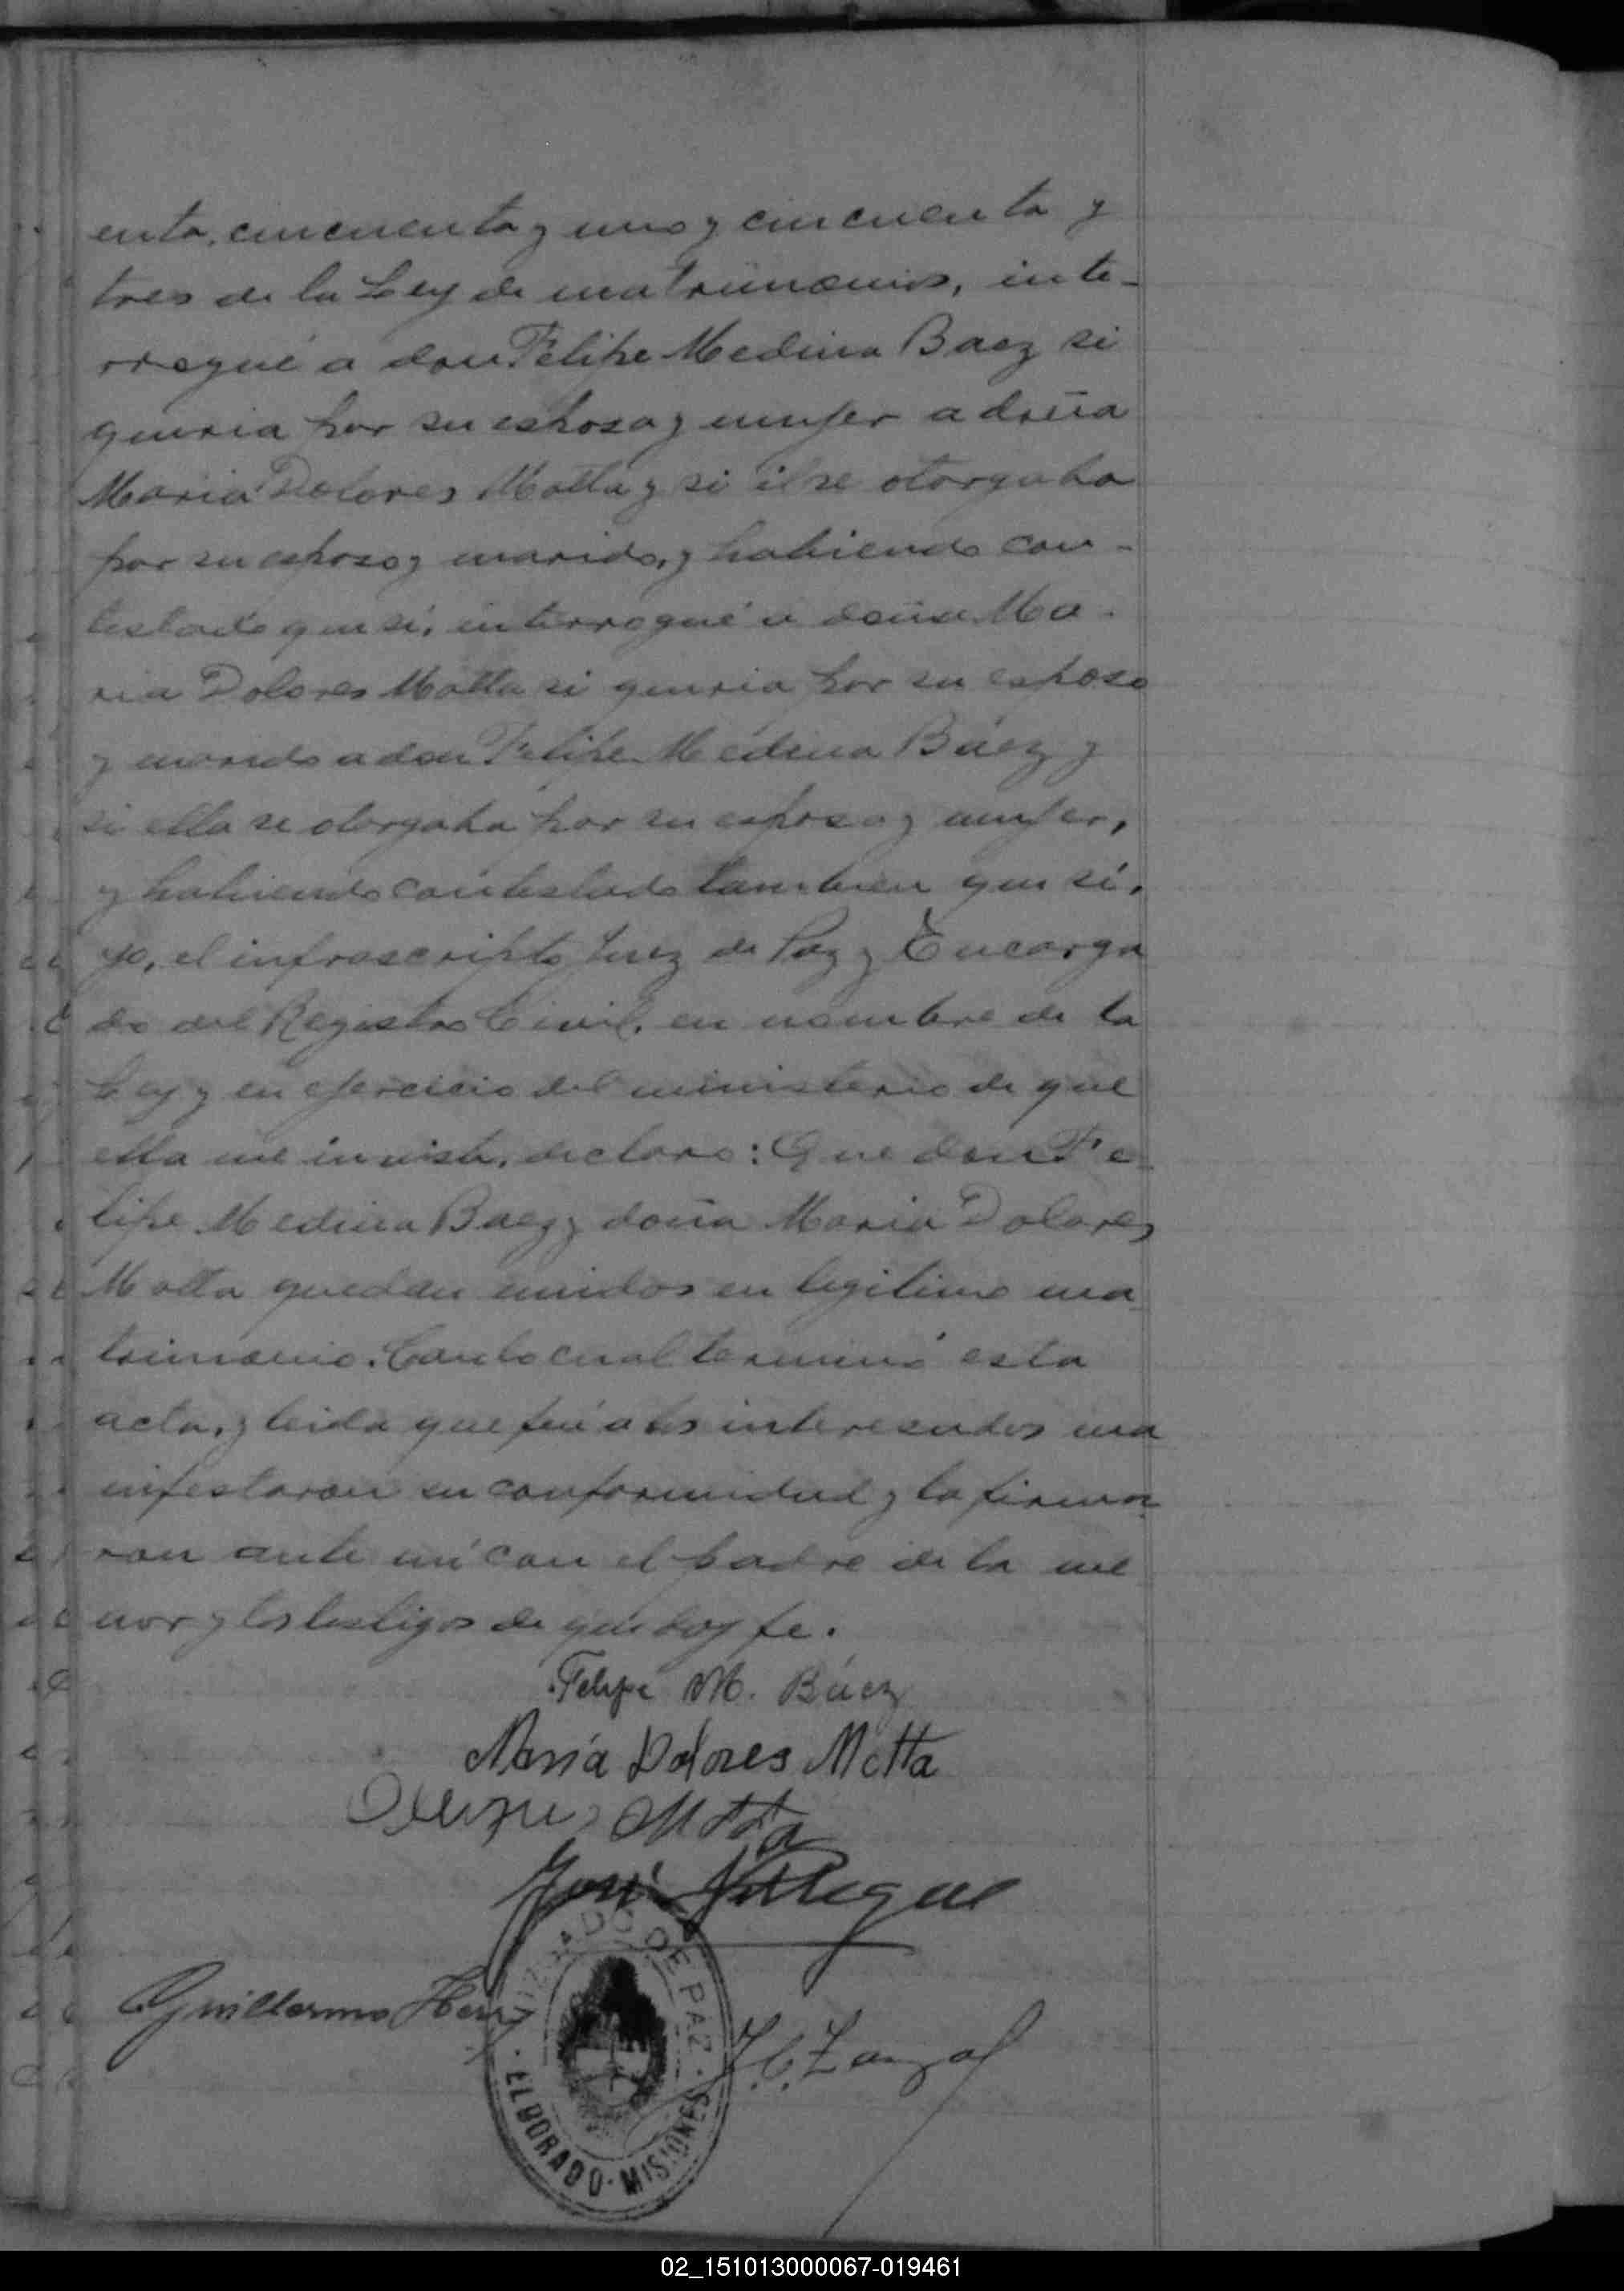 enta, cincuenta y uno y cincuenta y
tres de la Ley de matrimonios, inte-
rrogué a don Felipe Medina Baez si
queria por su esposa y mujer a doña
Maria Dolores Motta y si él se otorgaba
por su esposo y marido, y habiendo con-
testado que sí, interrogué a doña Ma-
ria Dolores Motta si queria por su esposo
y marido a don Felipe Medina Báez y
si ella se otorgaba por su esposa y mujer,
y habiendo contestado tambien que sí,
yo, el infrascripto Juez de Paz y Encarga
do del Registro Civil, en nombre de la
Ley y en ejercicio del ministerio de que
ella me inviste, declaro: Que don Fe-
lipe Medina Baez y doña Maria Dolores
Motta quedan unidos en legitimo ma
trimonio. Con lo cual terminó esta
acta, y leida que fué a los interesados ma
nifestaron su conformidad y la firma-
ron ante mí con el padre de la me
nor y los testigos de que doy fe.
Felipe M. Báez
María Dolores Motta
Motta
José
Guillermo
JUZGADO DE PAZ
ELDORADO · MISIONES
02_151013000067-019461